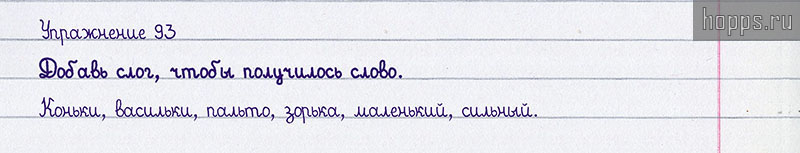 hopps.ru
Упражнение 93
Добавь слог, чтобы получилось слово.
Коньки, васильки, пальто, зорька, маленький, сильный.